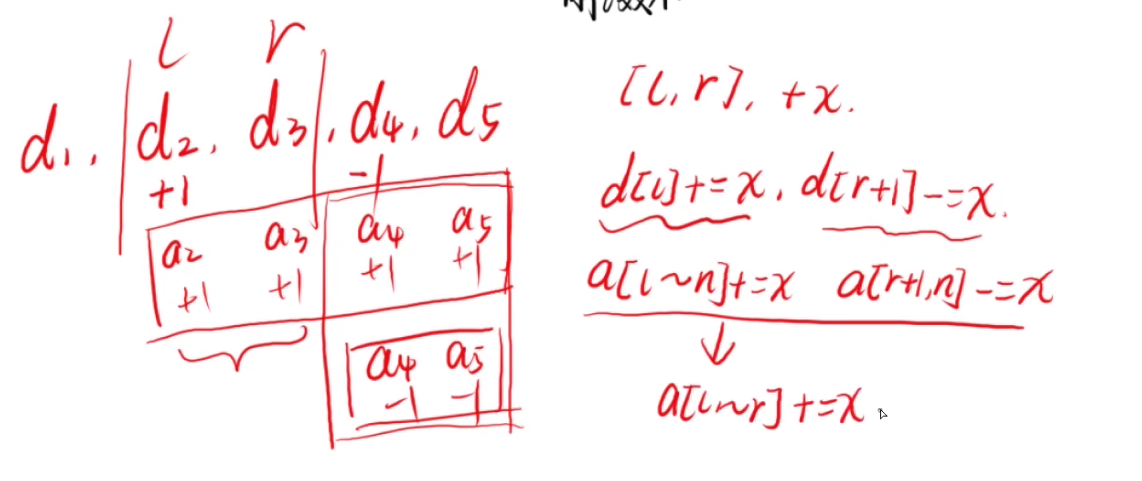 l r
d₁, d₂, d₃, d₄, d₅
+1 -1
a₂ a₃ a₄ a₅
+1 +1 +1 +1
a₄ a₅
-1 -1
[l,r], +x.
d[l]+=x, d[r+1]-=x.
a[l~n]+=x a[r+1,n]-=x
↓
a[l~r]+=x